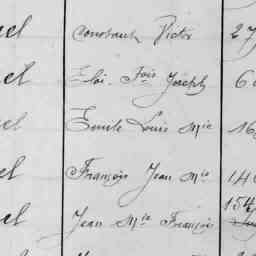 el Constant Victor 27
el Eloi Fois Joseph 6
el Emile Louis Mie 16
el François Jean Mie 14
el Jean Mie François 154